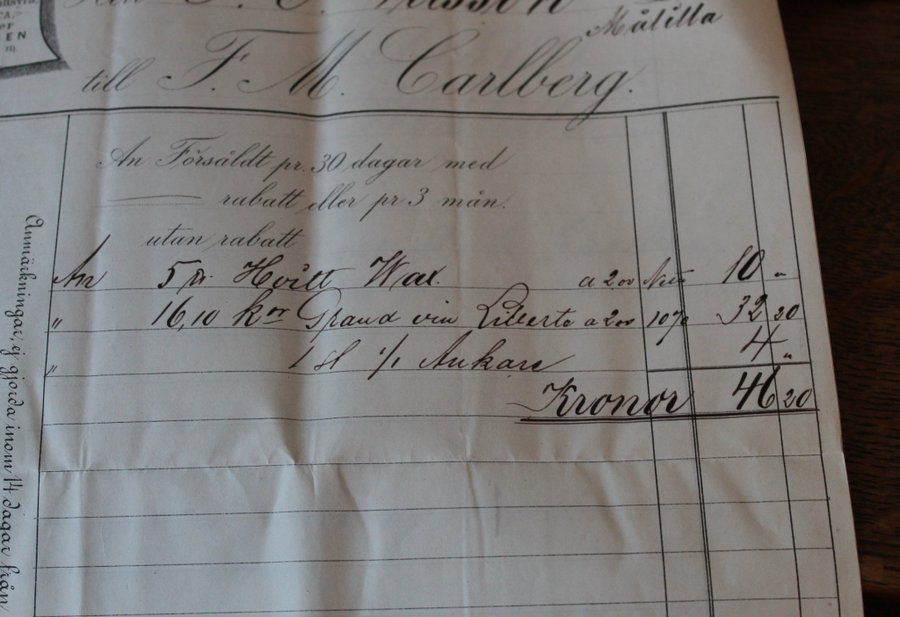 EN
Målilla
till F. M. Carlberg.
An Försåldt pr. 30 dagar med
rabatt eller pr 3 mån.
utan rabatt
An 5 Hvitt Wax. a 2.00 Netto 10 "
" 16,10 kor Grand vin Liberte a 2.00 10% 32 20
" 1 st 1/1 Ankare 4 "
Kronor 46 20
Anmärkningar, ej gjorda inom 14 dagar från